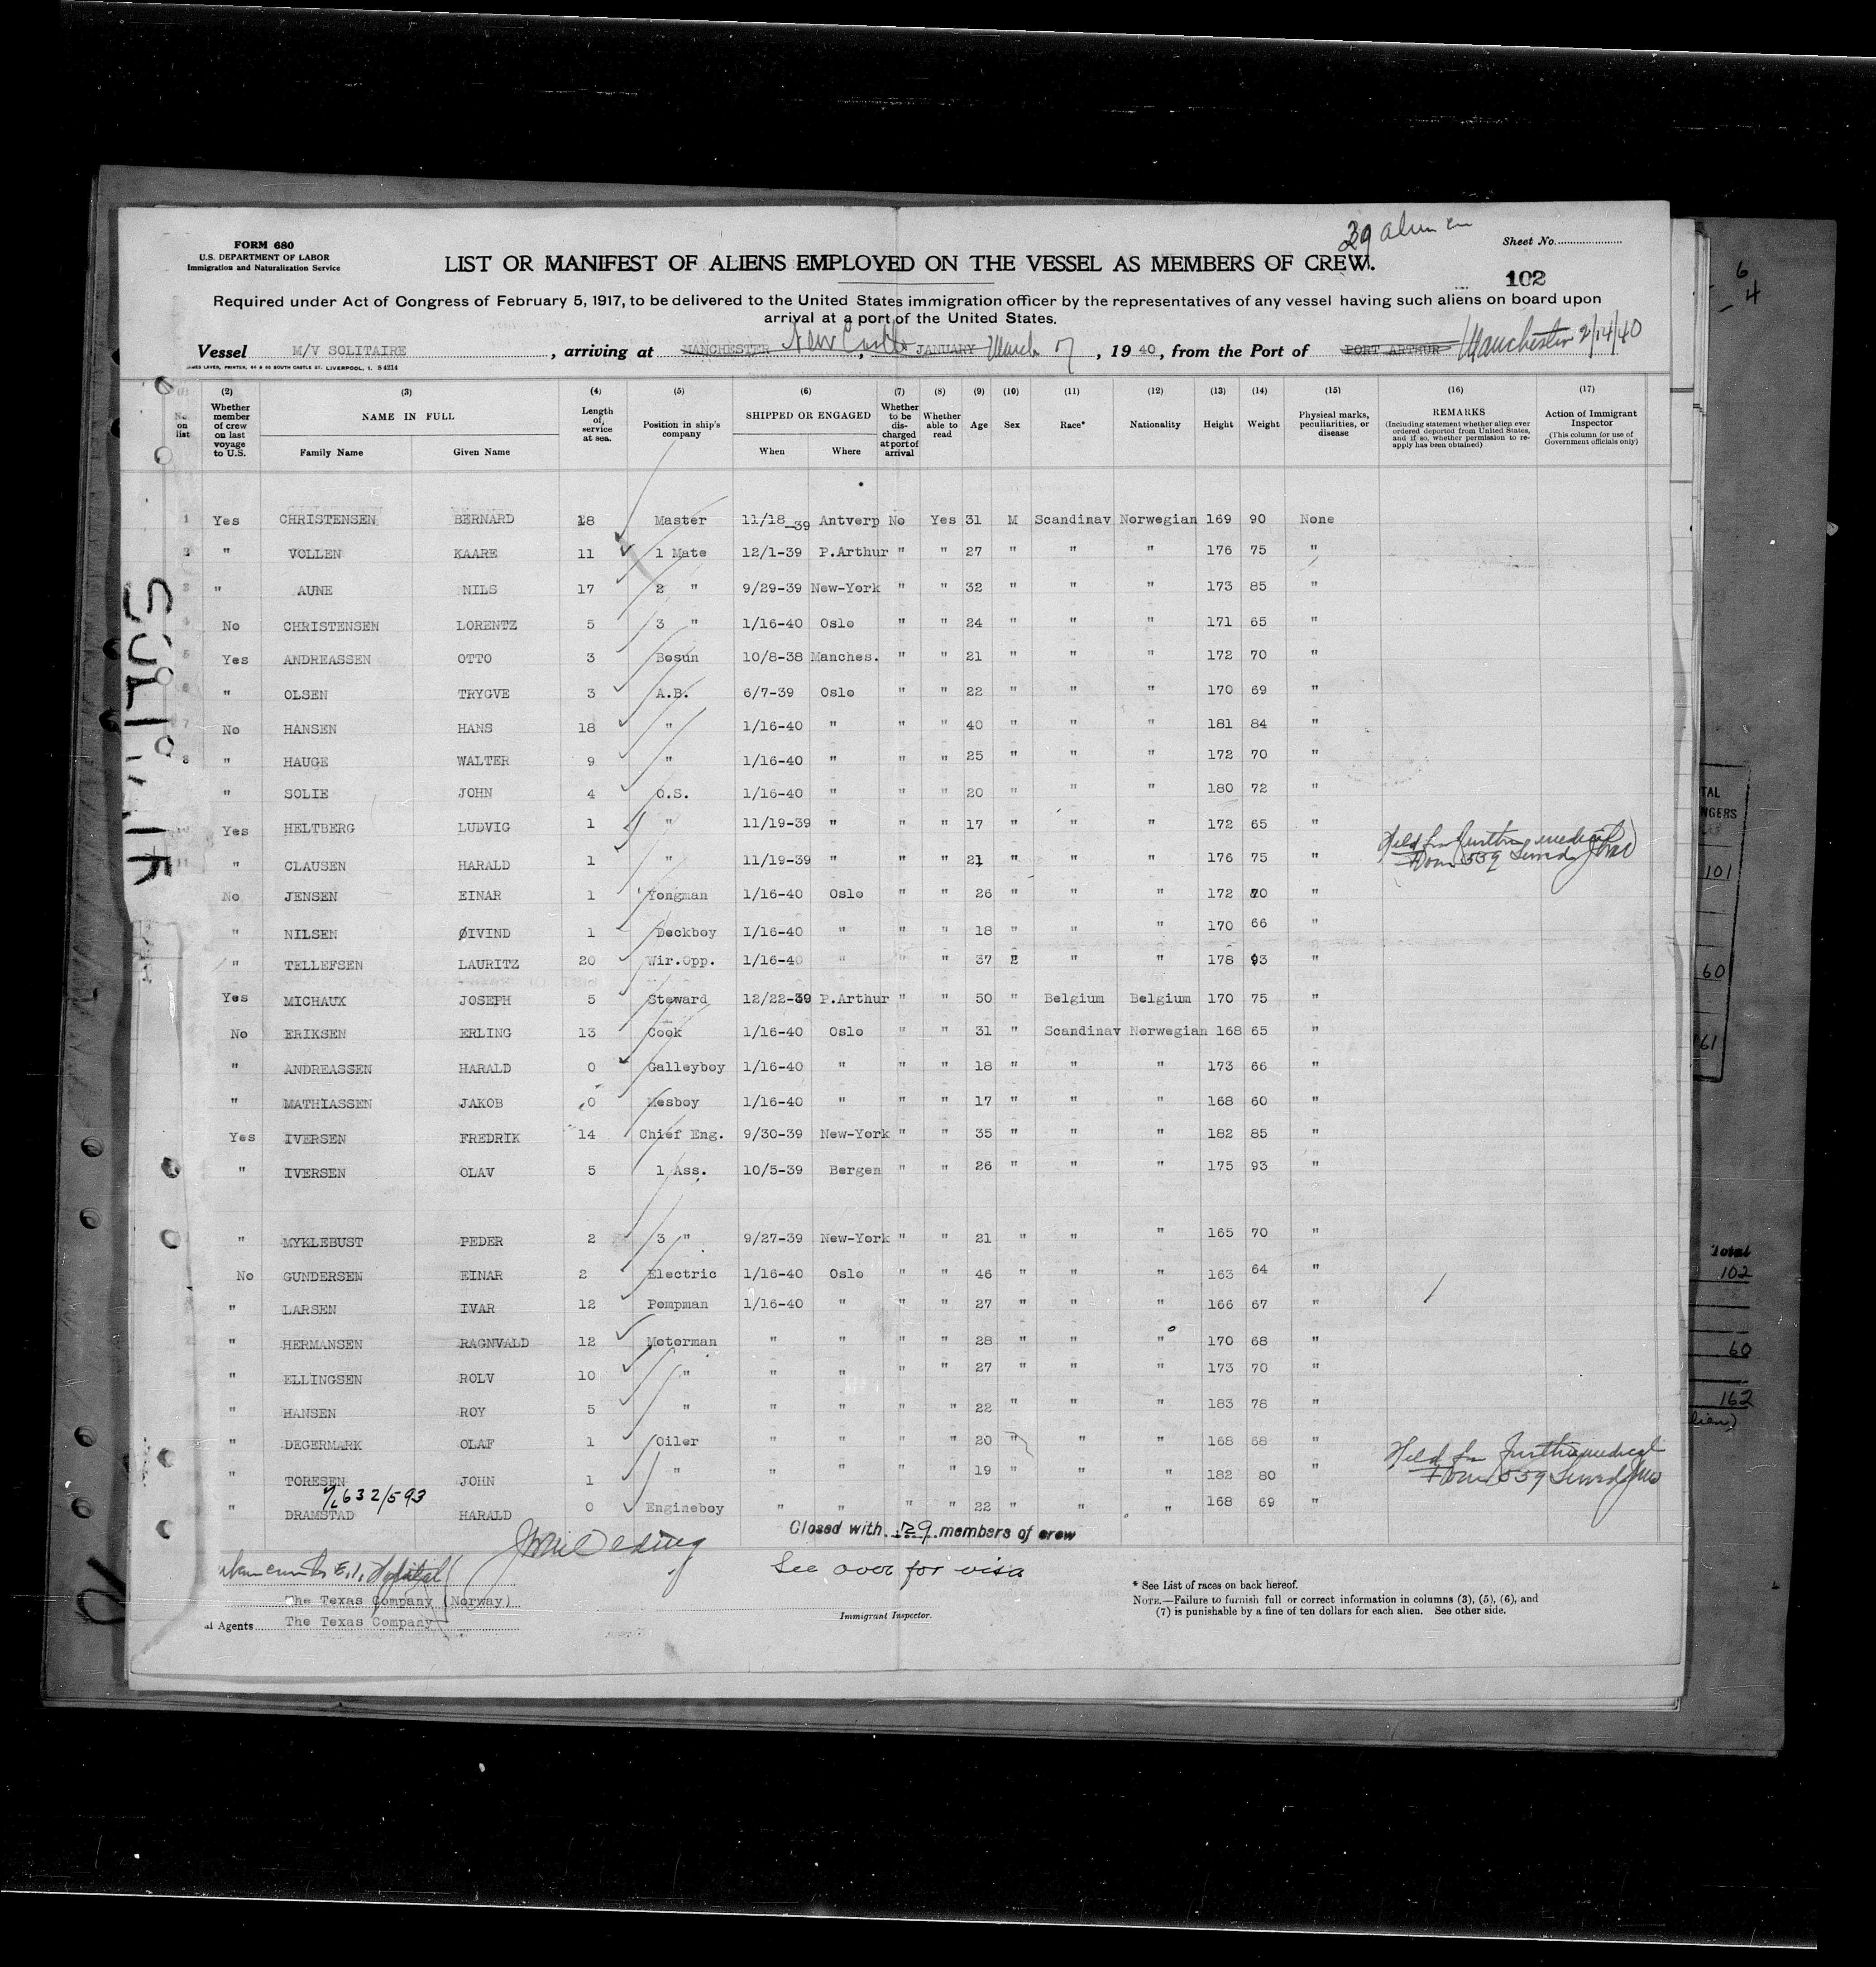 29 alien
Sheet No.
FORM 680
U.S. DEPARTMENT OF LABOR
Immigration and Naturalization Service
LIST OR MANIFEST OF ALIENS EMPLOYED ON THE VESSEL AS MEMBERS OF CREW.
102
Required under Act of Congress of February 5, 1917, to be delivered to the United States immigration officer by the representatives of any vessel having such aliens on board upon
arrival at a port of the United States.
Vessel M/V SOLITAIRE, arriving at MANCHESTER New Castle, JANUARY March 7, 1940, from the Port of PORT ARTHUR Manchester 2/14/40
JAMES LAVER, PRINTER, 64 & 66 SOUTH CASTLE ST. LIVERPOOL, 1. S 4214
(1) (2) (3) (4) (5) (6) (7) (8) (9) (10) (11) (12) (13) (14) (15) (16) (17)
No. on list
Whether member of crew on last voyage to U.S.
NAME IN FULL
Family Name Given Name
Length of service at sea.
Position in ship's company
SHIPPED OR ENGAGED
When Where
Whether to be discharged at port of arrival
Whether able to read
Age Sex Race* Nationality Height Weight
Physical marks, peculiarities, or disease
REMARKS
(Including statement whether alien ever ordered deported from United States, and if so, whether permission to re-apply has been obtained)
Action of Immigrant Inspector
(This column for use of Government officials only)
1 Yes CHRISTENSEN BERNARD 18 Master 11/18_39 Antverp No Yes 31 M Scandinav Norwegian 169 90 None
2 " VOLLEN KAARE 11 1 Mate 12/1-39 P.Arthur " " 27 " " " 176 75 "
3 " AUNE NILS 17 2 " 9/29-39 New-York " " 32 " " " 173 85 "
4 No CHRISTENSEN LORENTZ 5 3 " 1/16-40 Oslo " " 24 " " " 171 65 "
5 Yes ANDREASSEN OTTO 3 Bosun 10/8-38 Manches. " " 21 " " " 172 70 "
6 " OLSEN TRYGVE 3 A.B. 6/7-39 Oslo " " 22 " " " 170 69 "
7 No HANSEN HANS 18 " 1/16-40 " " " 40 " " " 181 84 "
8 " HAUGE WALTER 9 " 1/16-40 " " " 25 " " " 172 70 "
" SOLIE JOHN 4 O.S. 1/16-40 " " " 20 " " " 180 72 "
Yes HELTBERG LUDVIG 1 " 11/19-39 " " " 17 " " " 172 65 "
Held for further medical
11 " CLAUSEN HARALD 1 " 11/19-39 " " " 21 " " " 176 75 "
Form 559 served
No JENSEN EINAR 1 Yongman 1/16-40 Oslo " " 26 " " " 172 70 "
" NILSEN ØIVIND 1 Deckboy I/16-40 " " " 18 " " " 170 66 "
" TELLEFSEN LAURITZ 20 Wir.Opp. 1/16-40 " " " 37 " " " 178 93 "
Yes MICHAUX JOSEPH 5 Steward 12/22-39 P.Arthur " " 50 " Belgium Belgium 170 75 "
No ERIKSEN ERLING 13 Cook 1/16-40 Oslo " " 31 " Scandinav Norwegian 168 65 "
" ANDREASSEN HARALD 0 Galleyboy 1/16-40 " " " 18 " " " 173 66 "
" MATHIASSEN JAKOB 0 Mesboy 1/16-40 " " " 17 " " " 168 60 "
Yes IVERSEN FREDRIK 14 Chief Eng. 9/30-39 New-York " " 35 " " " 182 85 "
" IVERSEN OLAV 5 1 Ass. 10/5-39 Bergen " " 26 " " " 175 93 "
" MYKLEBUST PEDER 2 3 " 9/27-39 New-York " " 21 " " " 165 70 "
No GUNDERSEN EINAR 2 Electric 1/16-40 Oslo " " 46 " " " 163 64 "
" LARSEN IVAR 12 Pompman 1/16-40 " " " 27 " " " 166 67 "
" HERMANSEN RAGNVALD 12 Motorman " " " " 28 " " " 170 68 "
" ELLINGSEN ROLV 10 " " " " " 27 " " " 173 70 "
" HANSEN ROY 5 " " " " " 22 " " " 183 78 "
" DEGERMARK OLAF 1 Oiler " " " " 20 " " " 168 68 "
Held for further medical
" TORESEN JOHN 1 " " " " " 19 " " " 182 80 "
Form 559 served
632/593
" DRAMSTAD HARALD 0 Engineboy " " " " 22 " " " 168 69 "
Closed with 29 members of crew
See over for visa
E.I. Hospital
The Texas Company (Norway)
al Agents The Texas Company
Immigrant Inspector.
* See List of races on back hereof.
NOTE.—Failure to furnish full or correct information in columns (3), (5), (6), and
(7) is punishable by a fine of ten dollars for each alien. See other side.
SOLITAIRE
6
4
TAL
NGERS
101
60
161
Total
102
60
162